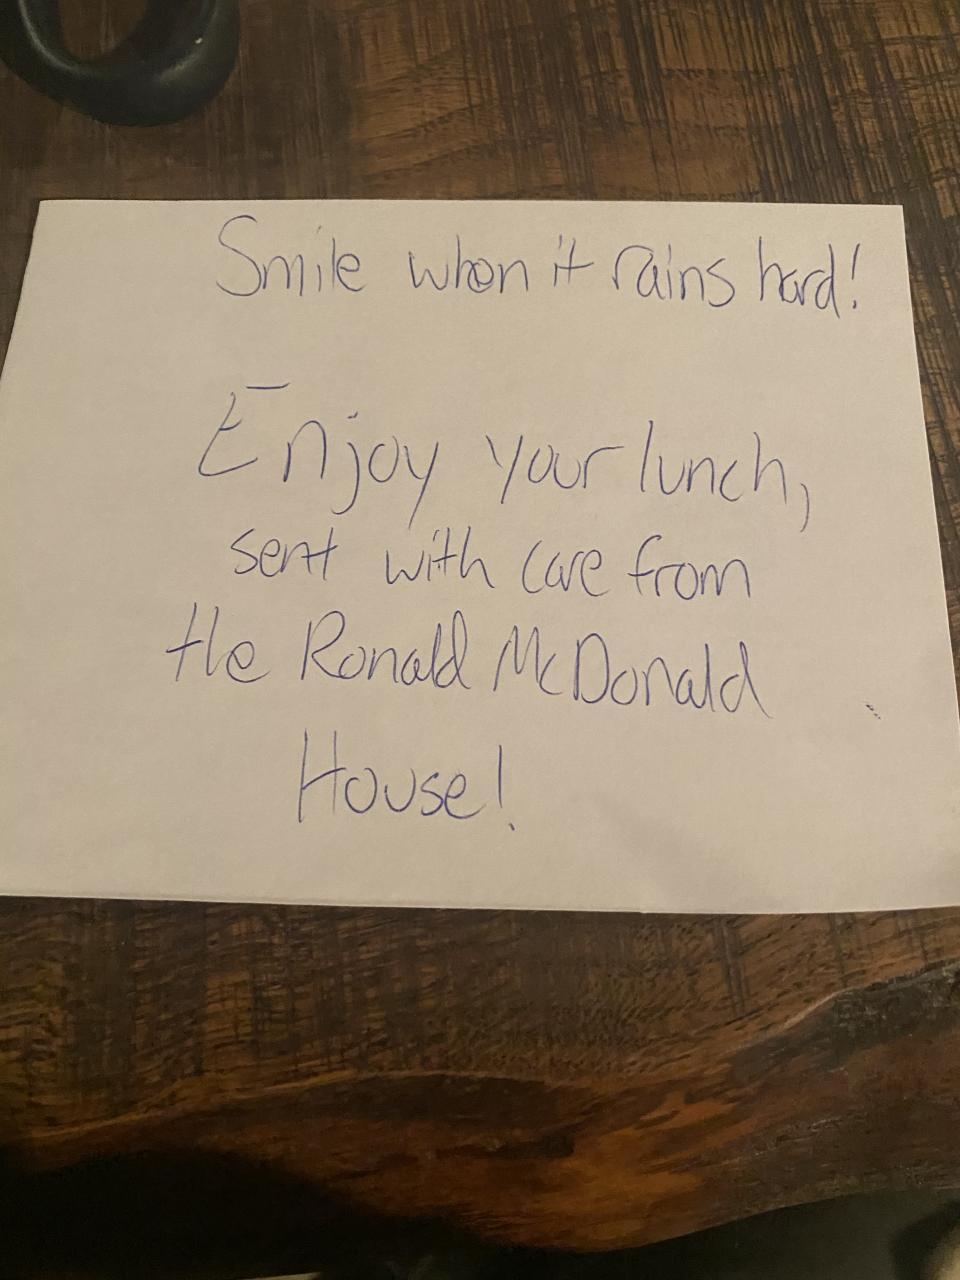 Smile when it rains hard!
Enjoy your lunch,
sent with care from
the Ronald McDonald
House!